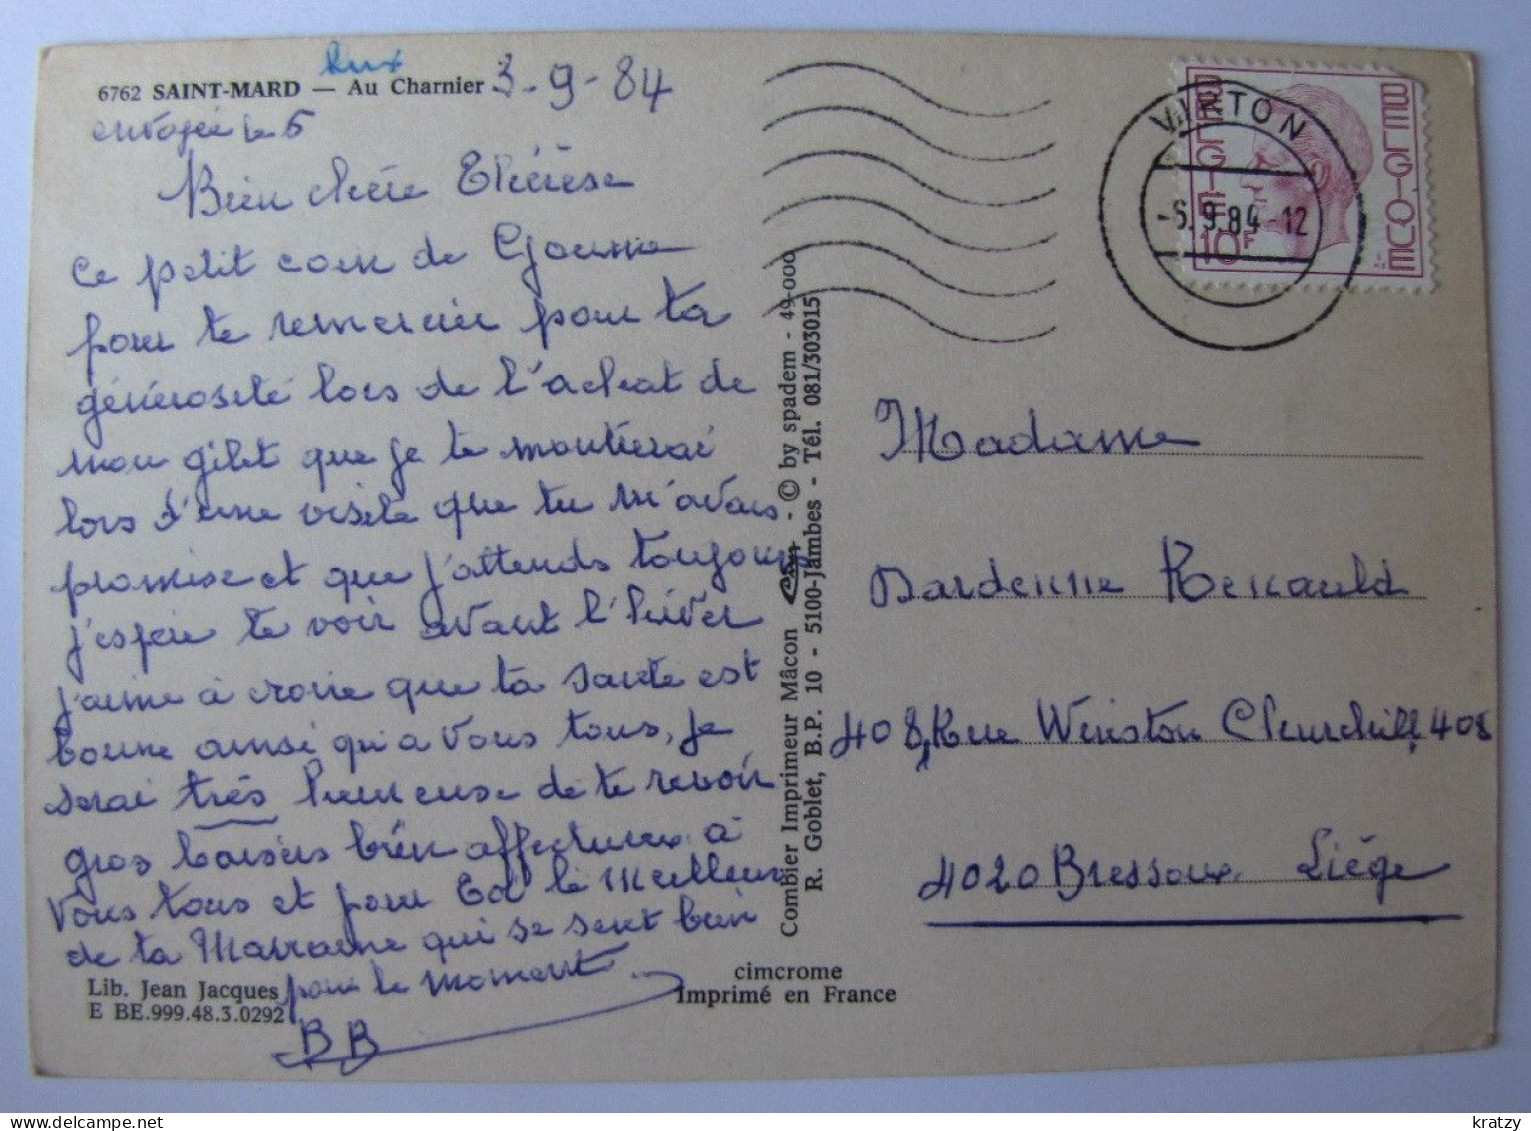 Lux
6762 SAINT-MARD — Au Charnier 3-9-84
envoyée le 5
Bien chère Thérèse
Ce petit coin de Gaume
pour te remercier pour ta
générosité lors de l'achat de
mon gilet que je te montrerai
lors d'une visite que tu m'avais
promise et que j'attends toujours
j'espère te voir avant l'hiver
j'aime à croire que ta santé est
bonne ainsi qu'a vous tous, je
serai très heureuse de te revoir
gros baisers bien affectueux à
Vous tous et pour Ed le Meilleur
de ta Marraine qui se sent bien
pour le moment
BB
Lib. Jean Jacques
E BE.999.48.3.0292
cimcrome
Imprimé en France
Combier Imprimeur Mâcon CIM - © by spadem - 49-000
R. Goblet, B.P. 10 - 5100-Jambes - Tél. 081/303015
VIRTON
-5.9.84-12
BELGIE BELGIQUE
10F
Madame
Dardenne Renauld
408, Rue Winston Churchill, 408
4020 Bressoux Liège
kratzy